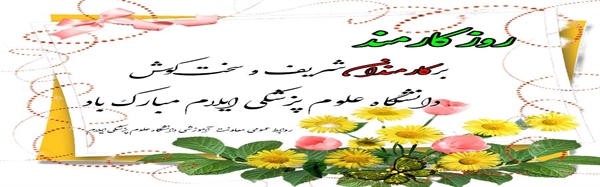 روز کارمند
بر کارمندان شریف و سخت کوش
دانشگاه علوم پزشکی ایلام مبارک باد
روابط عمومی معاونت آموزشی دانشگاه علوم پزشکی ایلام